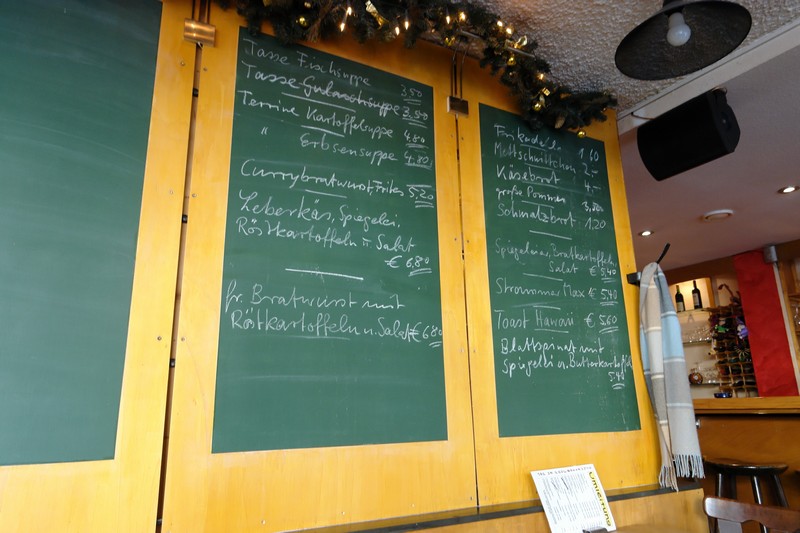 Tasse Fischsuppe 3,50
Tasse Gulaschsuppe 3,50
Terrine Kartoffelsuppe 4,80
" Erbsensuppe 4,80
Currybratwurst, Frites 5,20
Leberkäs, Spiegelei,
Röstkartoffeln u. Salat
€ 6,80
fr. Bratwurst mit
Röstkartoffeln u. Salat € 6,80
Frikadelle 1,60
Mettschnittchen 2,-
Käsebrot 4,-
große Pommes
Schmalzbrot 1,20
Spiegeleier, Bratkartoffeln,
Salat € 5,40
Strammer Max € 5,40
Toast Hawaii € 5,60
Blattspinat mit
Spiegelei u. Butterkartoffel
5,40